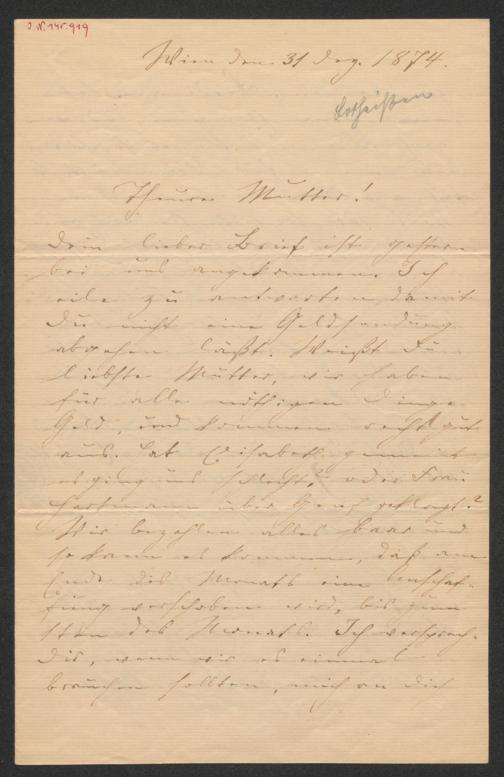 J.N. 145.919
Wien den 31 Dez. 1874.
Lotheißen
Theure Mutter!
Dein lieber Brief ist gestern
bei uns angekommen. Ich
eile zu antworten, damit
Du nicht eine Geldsendung
abgehen läßt. Weißt Du
liebste Mutter, wir haben
für alle nöthigen Dinge
Geld, und kommen recht gut
aus. Hat Elisabeth gemeint
es ging uns schlecht, oder Frau
Hartmann über geklagt?
Wir bezahlen alles baar und
so kann es kommen, daß am
Ende des Monats eine Anschaf-
fung verschoben wird, bis zum
1ten des Monats. Ich versprech
Dir, wenn wir es einmal
brauchen sollten, mich an Dich